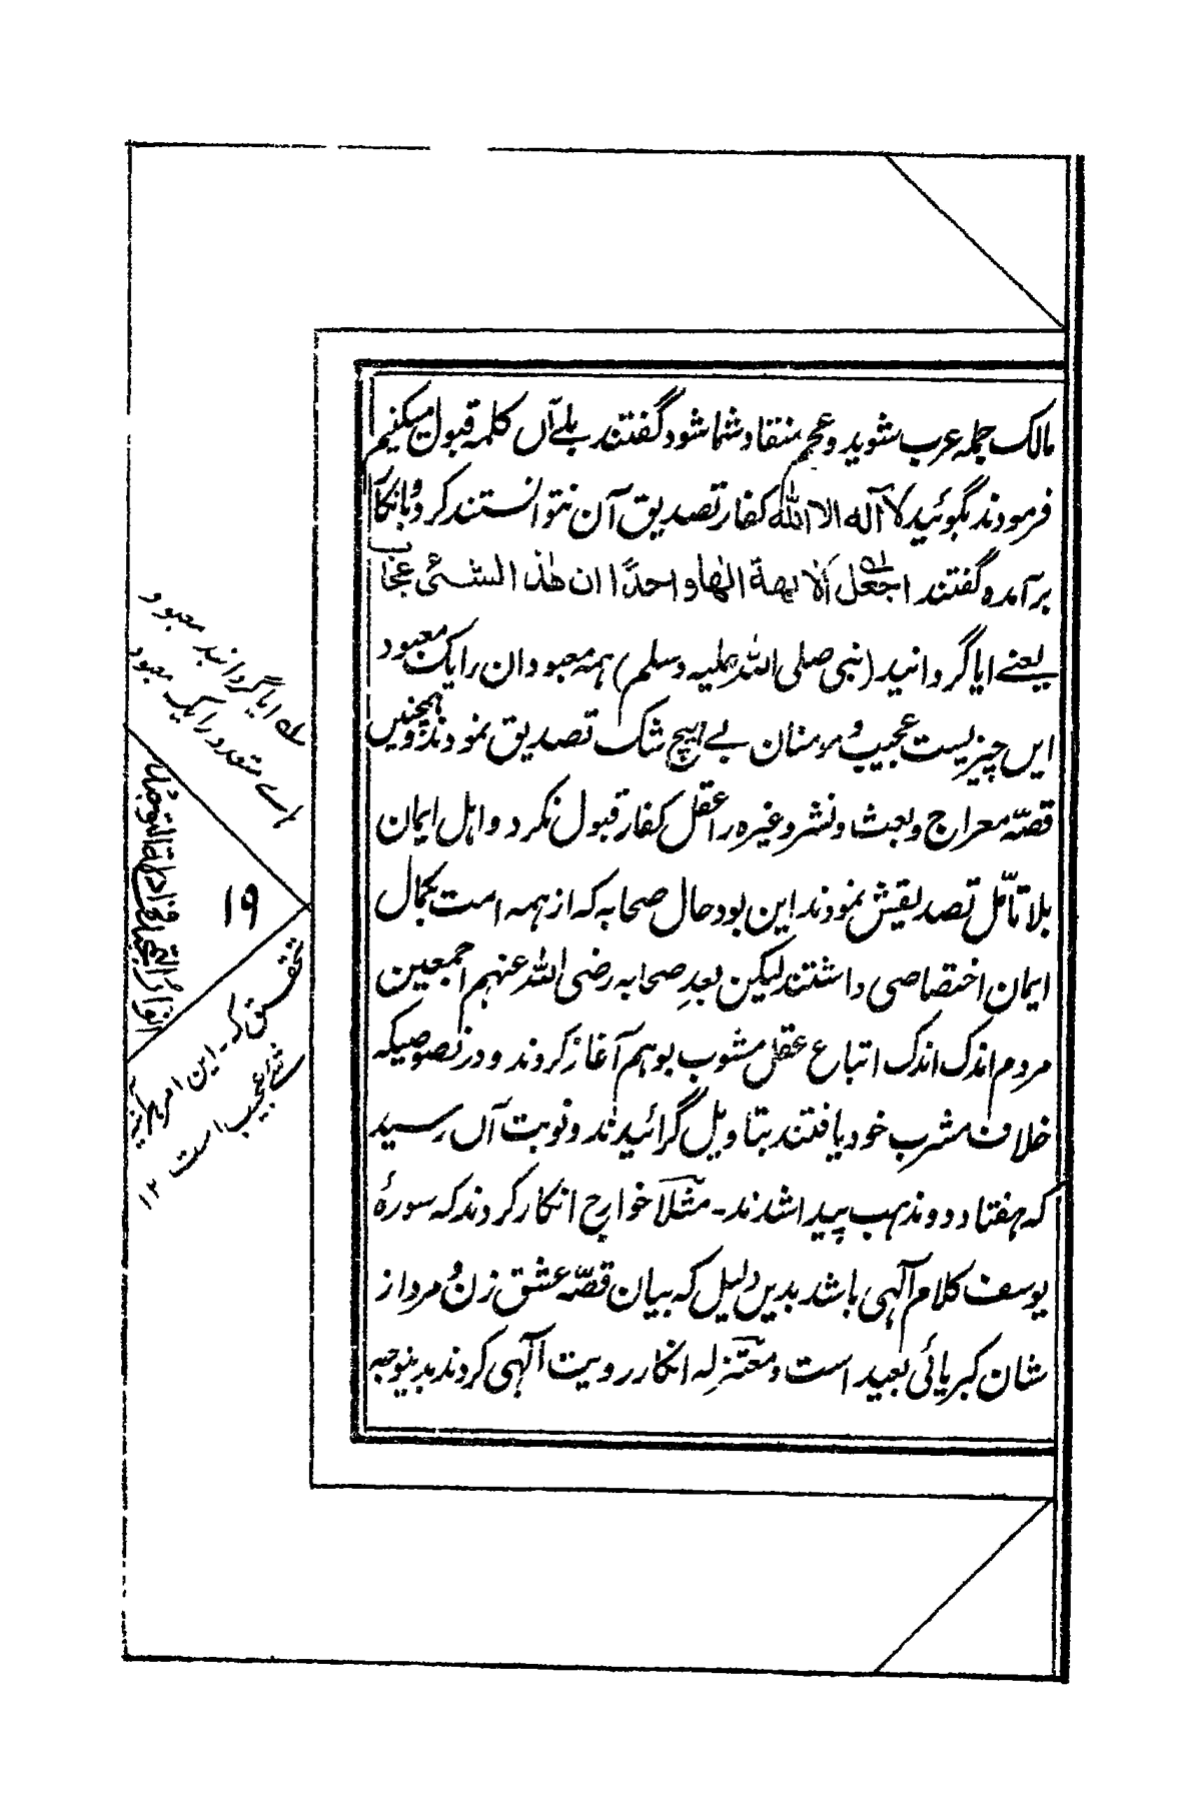 مالک جمله عرب شوید و عجم منقاد شما شود گفتند بلے آں کلمه قبول میکنیم
فرمودند بگوئید لا آله الا الله کفار تصدیق آن نتوانستند کرد و بانکار
برآمده گفتند اجعل الالهة الٰها واحدًا ان هٰذا لشئی عجاب
یعنے ایا گردانید (نبی صلی الله علیه وسلم) همه معبودان را یک معبود
ایں چیزیست عجیب و مومنان بے هیچ شک تصدیق نمودند و همچنیں
قصّه معراج و بعث و نشر و غیره را عقل کفار قبول نکرد و اهل ایمان
بلا تأمّل تصدیقش نمودند این بود حال صحابه که از همه امت بکمال
ایمان اختصاصی داشتند لیکن بعدِ صحابه رضی الله عنهم اجمعین
مردم اندک اندک اتباع عقل مشوب بوهم آغاز کردند و در نصوصیکه
خلاف مشربِ خود یافتند بتاویل گرائیدند و نوبت آں رسید
که هفتاد و دو مذهب پیدا شدند۔ مثلاً خوارج انکار کردند که سورۂ
یوسف کلام آلهی باشد بدیں دلیل که بیان قصّه عشق زن و مرد از
شان کبریائی بعید است و معتزله انکار رویت آلهی کردند بدینوجه
له ایا گردانید معبود
اے متعدد را یک معبود
۱۹
تحقیق که۔ این امر هرآینه
شئے عجیب است ۱۲